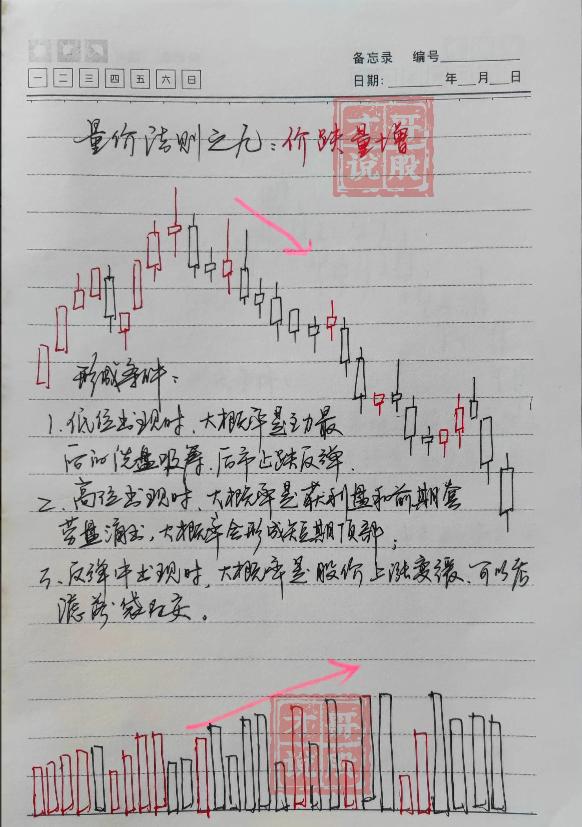 备忘录 编号
一 二 三 四 五 六 日
日期: 年 月 日
量价法则之九:价跌量增
才哥
说股
形成条件:
1、低位出现时,大概率是主力最
后的洗盘吸筹,后市止跌反弹.
2、高位出现时,大概率是获利盘和前期套
劳盘涌出,大概率会形成短期顶部;
3、反弹中出现时,大概率是股价上涨变缓,可以考
虑落袋为安。
才哥
说股